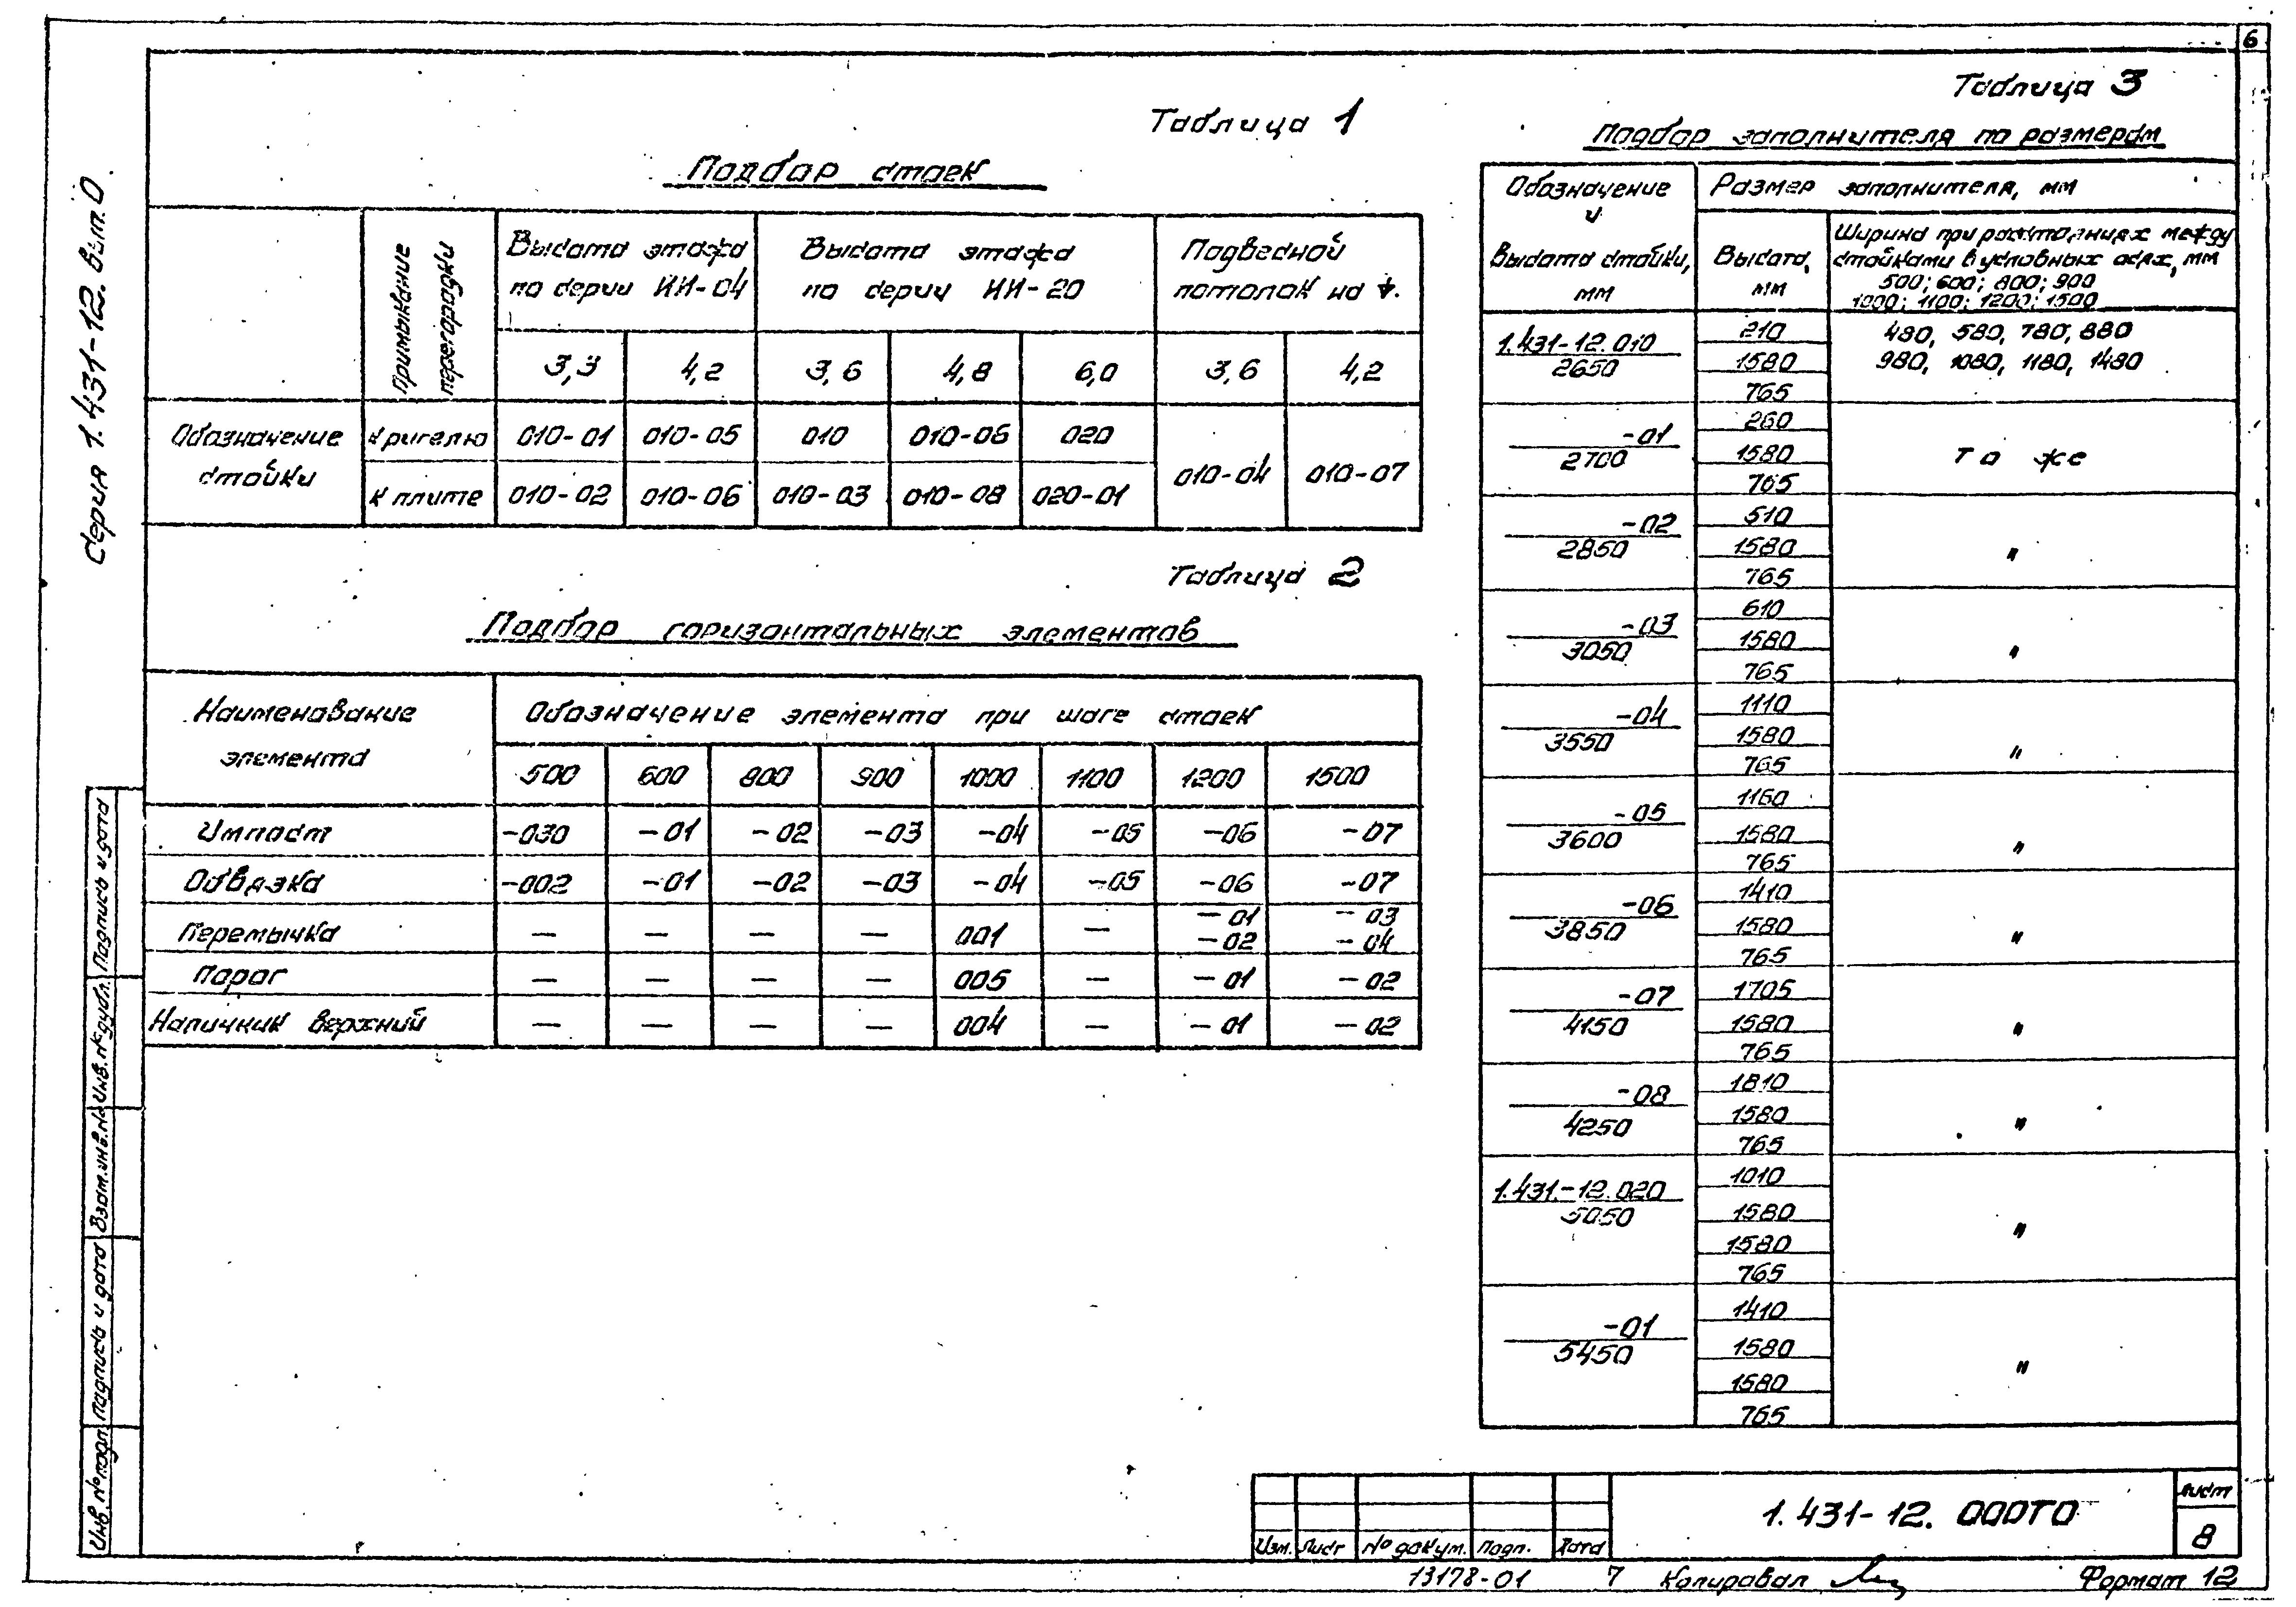 6
Серия 1.431-12. Вып.0.
Таблица 1
Подбор стоек
Примыкание перегородки
Высота этажа по серии ИИ-04
Высота этажа по серии ИИ-20
Подвесной потолок на
3,3 4,2 3,6 4,8 6,0 3,6 4,2
Обозначение стойки
К ригелю 010-01 010-05 010 010-06 020
К плите 010-02 010-06 010-03 010-08 020-01
010-04 010-07
Таблица 2
Подбор горизонтальных элементов
Наименование элемента
Обозначение элемента при шаге стоек
500 600 800 900 1000 1100 1200 1500
Импост -030 -01 -02 -03 -04 -05 -06 -07
Обвязка -002 -01 -02 -03 -04 -05 -06 -07
Перемычка — — — — 001 — -01 -02 -03 -04
Порог — — — — 005 — -01 -02
Наличник верхний — — — — 004 — -01 -02
Таблица 3
Подбор заполнителя по размерам
Обозначение и Высота стойки, мм
Размер заполнителя, мм
Высота, мм
Ширина при расстояниях между
стойками в условных осях, мм
500; 600; 800; 900
1000; 1100; 1200; 1500
1.431-12.010
2650
210
1580
765
480, 580, 780, 880
980, 1080, 1180, 1480
-01
2700
260
1580
765
То же
-02
2850
510
1580
765
"
-03
3050
610
1580
765
"
-04
3550
1110
1580
765
"
-05
3600
1160
1580
765
"
-06
3850
1410
1580
765
"
-07
4150
1705
1580
765
"
-08
4250
1810
1580
765
"
1.431-12.020
5050
1010
1580
1580
765
"
-01
5450
1410
1580
1580
765
"
Инв. № подл. Подпись и дата Взам. инв. № Инв. № дубл. Подпись и дата
Изм. Лист № докум. Подп. Дата
1.431-12. 000ТО
Лист
8
13178-01 7 Копировал Формат 12